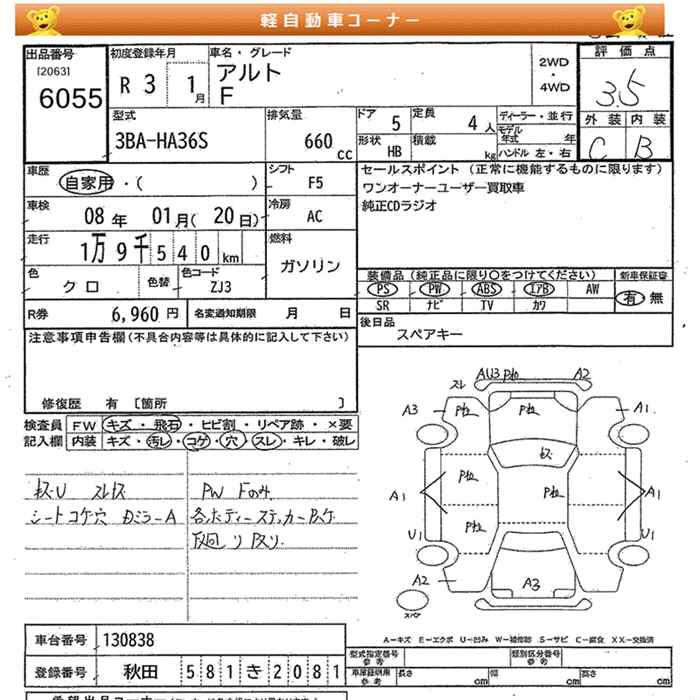 軽自動車コーナー
出品番号
[2063]
6055
初度登録年月
R 3 1月
車名・グレード
アルト
F
2WD
・
4WD
評価点
3.5
外装 内装
C B
型式
3BA-HA36S
排気量
660 cc
ドア 5
定員 4人
形状 HB
積載 kg
ディーラー・並行
モデル年式 年
ハンドル 左・右
車歴
自家用・( )
シフト
F5
セールスポイント (正常に機能するものに限ります)
ワンオーナーユーザー買取車
純正CDラジオ
車検
08年 01月( 20日)
冷房
AC
走行
1万9千540km
燃料
ガソリン
色
クロ
色替
色コード
ZJ3
装備品(純正品に限り〇をつけてください)
新車保証書
PS PW ABS エアB AW
SR ナビ TV カワ
有・無
R券 6,960円
名変通知期限 月 日
後日品
スペアキー
注意事項申告欄(不具合内容等は具体的に記入して下さい)
修復歴 有 [箇所 ]
検査員
記入欄
FW キズ・飛石・ヒビ割・リペア跡・×要
内装 キズ・汚レ・コゲ・穴・スレ・キレ・破レ
シートコゲ穴
PW Fのみ
AU3 A2
スレ
A3 A1
A1 A1
U1 U1
A2 A3
スペア
A-キズ E-エクボ U-凹み W-補修跡 S-サビ C-腐食 XX-交換済
車台番号 130838
登録番号 秋田 581 き 2081
型式指定番号
参考
類別区分番号
参考
車庫証明用
参考
長さ cm 幅 cm 高さ cm